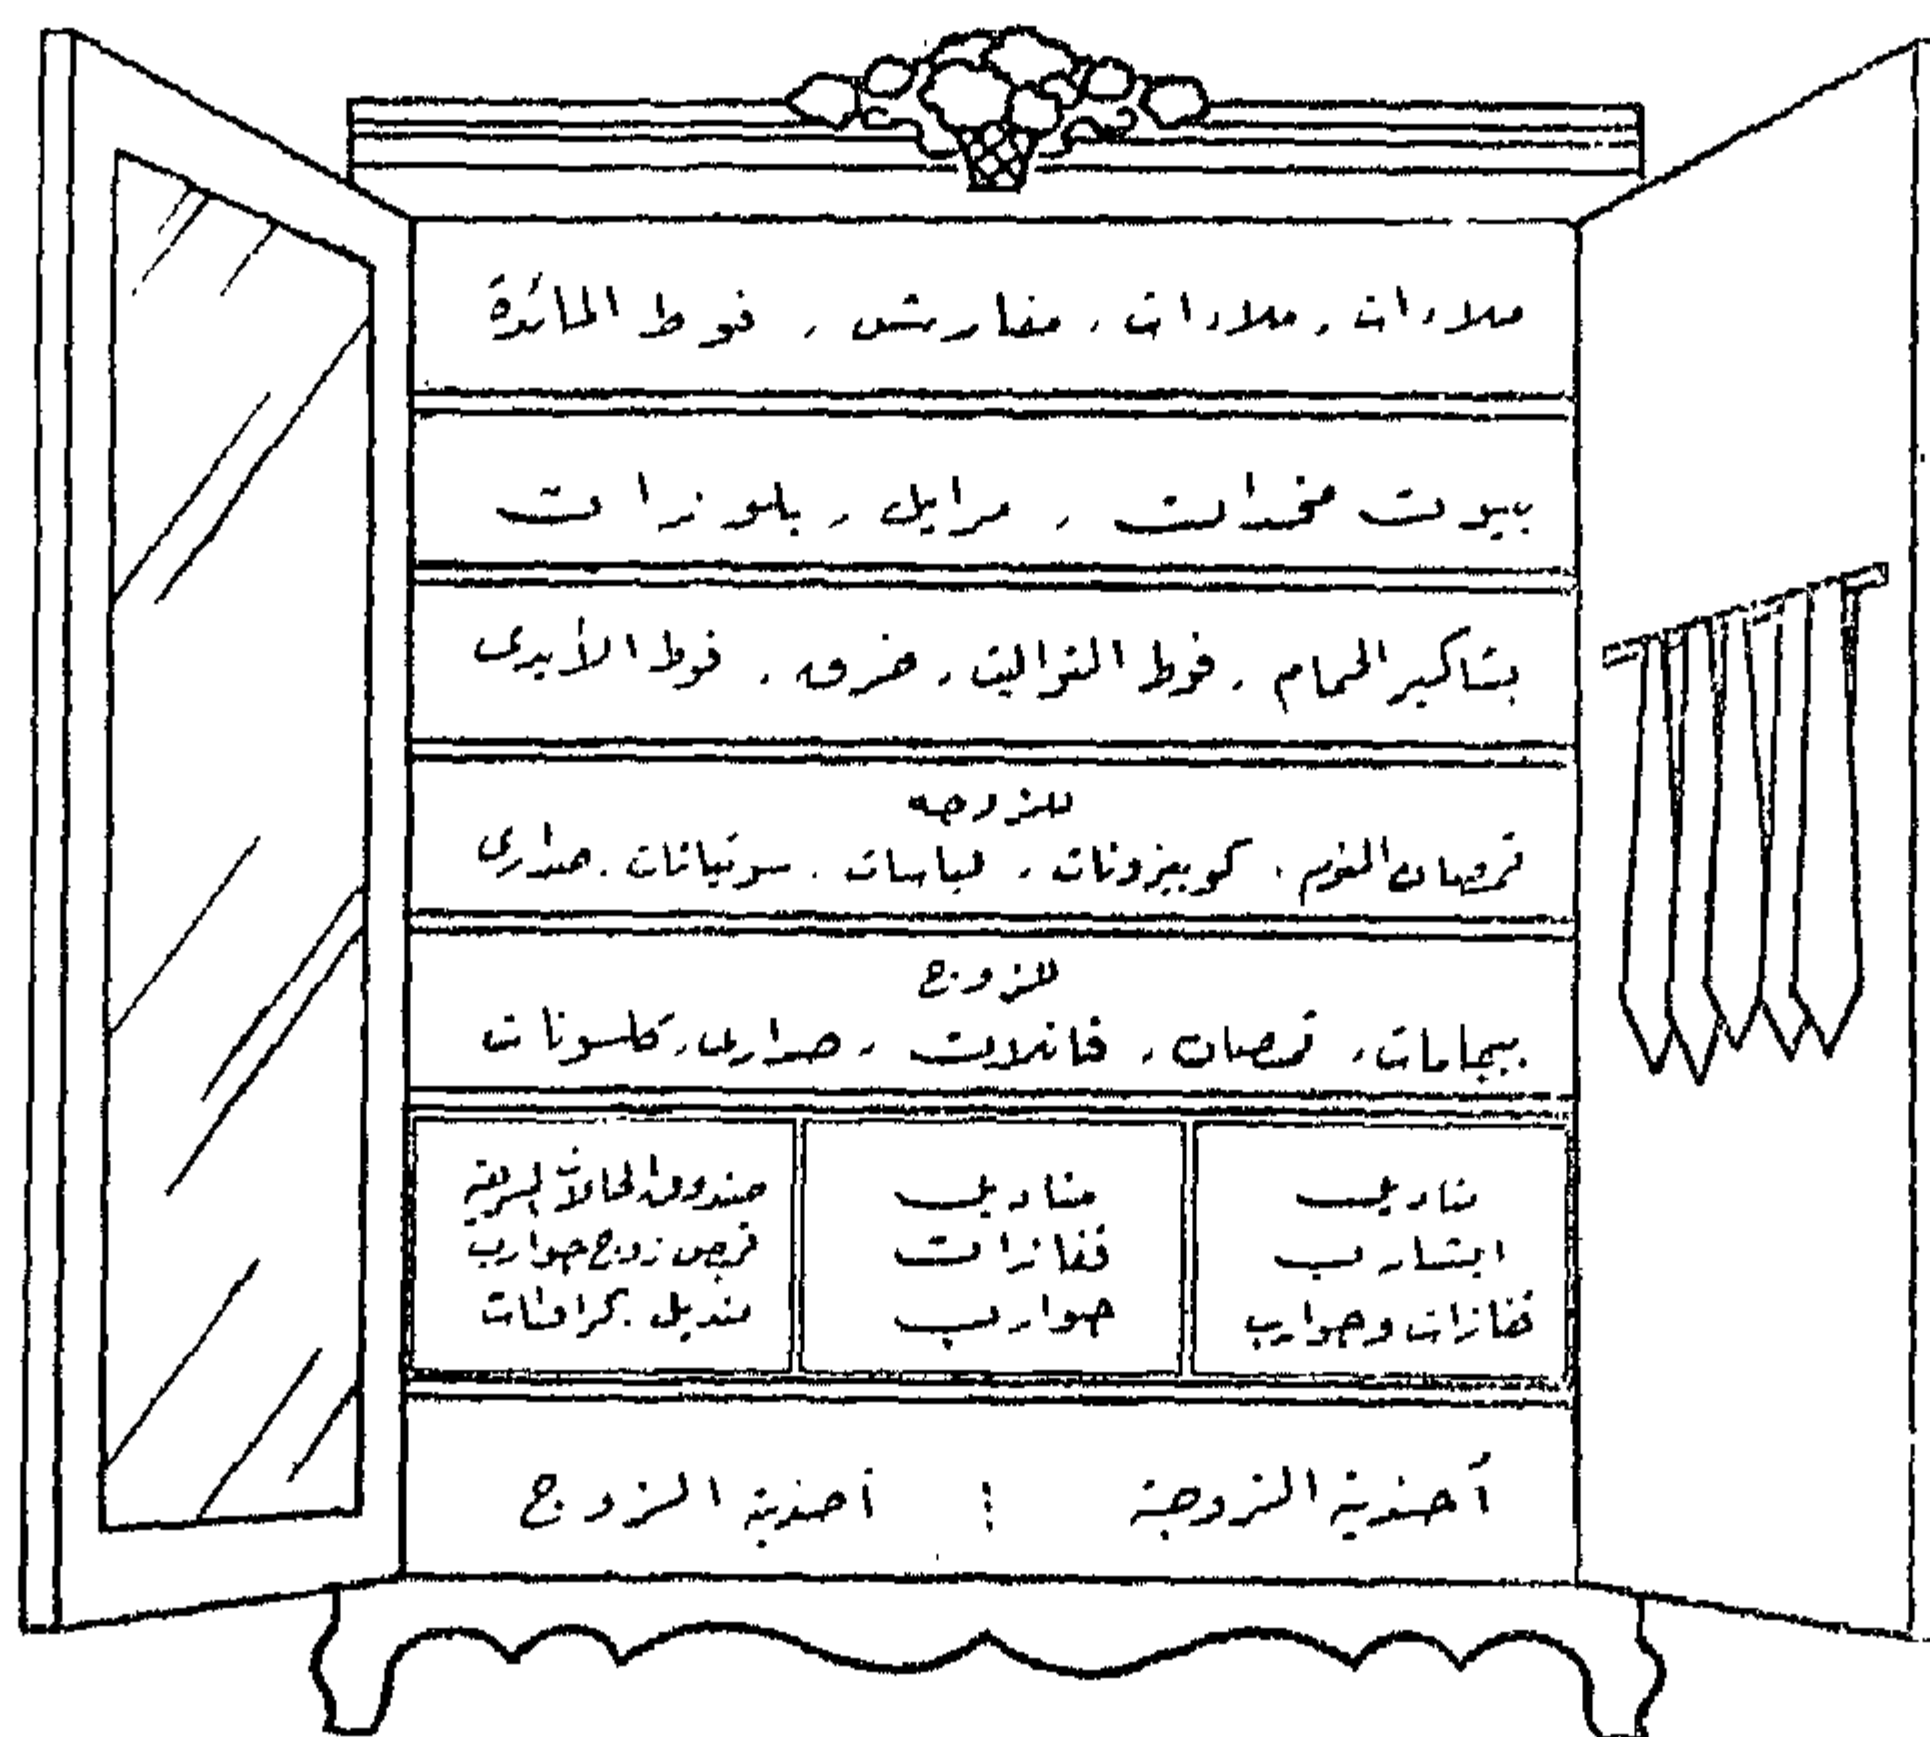 ملاءات ، ملاءات ، مفارش ، فوط المائدة
بيوت مخدات ، مرايل ، بلوزات
بشاكير الحمام ، فوط التواليت ، خرق ، فوط الأيدى
للزوجه
قمصان النوم ، كومبيزونات ، لباسات ، سوتيانات ، صدارى
للزوج
بيجامات ، قمصان ، فانلات ، صدارى ، كلسونات
مناديل
ايشارب
قفازات وجوارب
مناديل
قفازات
جوارب
صندوق لحالات السريعة
قميص زوج جوارب
منديل . كرافتات
أحذية الزوجة : أحذية الزوج